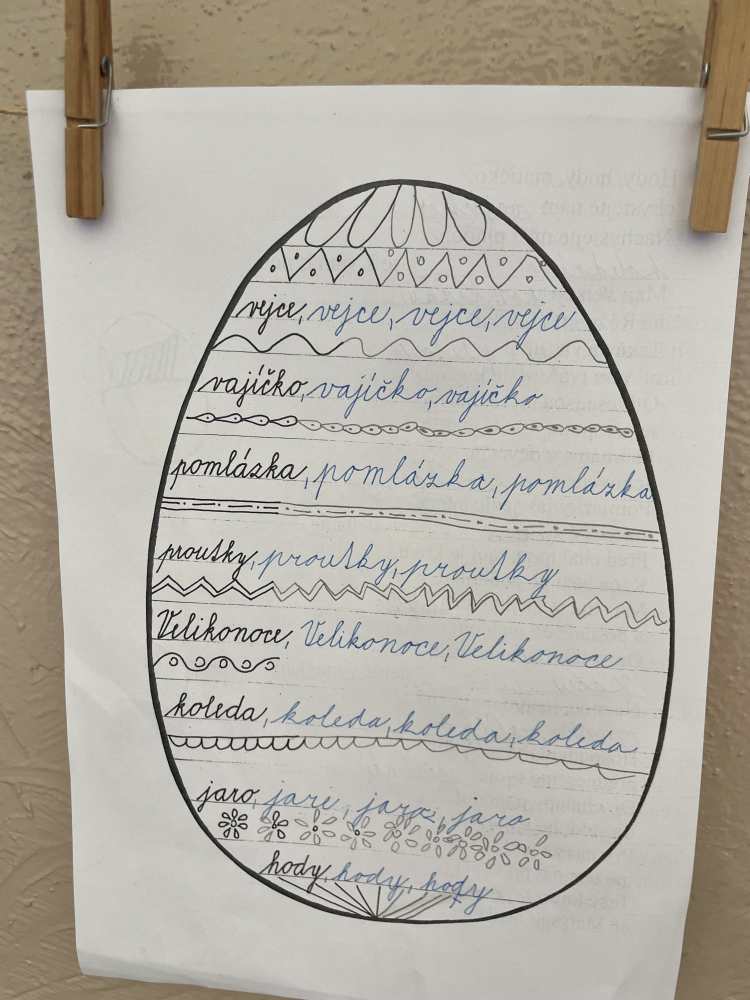 vejce, vejce, vejce, vejce
vajíčko, vajíčko, vajíčko
pomlázka, pomlázka, pomlázka
proutky, proutky, proutky
Velikonoce, Velikonoce, Velikonoce
koleda, koleda, koleda, koleda
jaro, jaro, jaro, jaro
hody, hody, hody